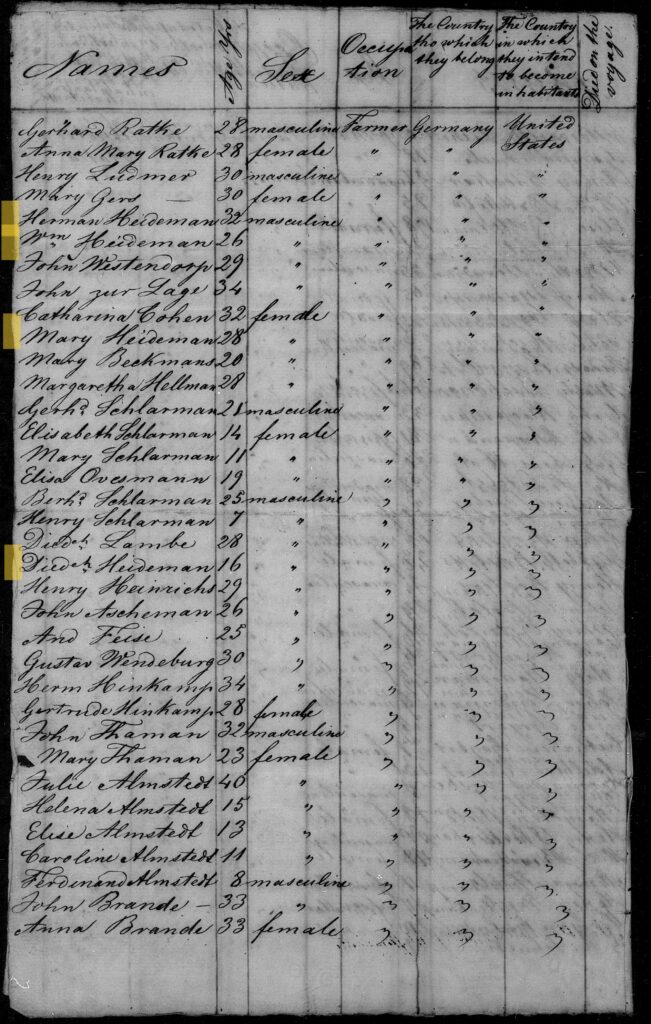 Names Age Yrs Sex Occupation The Country tho which they belong The Country in which they intend to become inhabitants Died on the voyage.
Gerhard Ratke 28 masculine Farmer Germany United States
Anna Mary Ratke 28 female " " "
Henry Ludmer 30 masculine " " "
Mary Gers — 30 female " " "
Herman Heideman 32 masculine " " "
Wm Heideman 26 " " " "
John Westendorp 29 " " " "
John zur Lage 34 " " " "
Catharina Cohen 32 female " " "
Mary Heideman 28 " " " "
Mary Beckmans 20 " " " "
Margaretha Hellman 28 " " " "
Gerhd. Schlarman 21 masculine " " "
Elisabeth Schlarman 14 female " " "
Mary Schlarman 11 " " " "
Elisa Ovesmann 19 " " " "
Berhd. Schlarman 25 masculine " " "
Henry Schlarman 7 " " " "
Diedch. Lambe 28 " " " "
Diedch. Heideman 16 " " " "
Henry Heinrichs 29 " " " "
John Ascheman 26 " " " "
And Feise 25 " " " "
Gustav Wendeburg 30 " " " "
Herm Hinkamp 34 " " " "
Gertrude Hinkamp 28 female " " "
John Thaman 32 masculine " " "
Mary Thaman 23 female " " "
Julie Almstedt 40 " " " "
Helena Almstedt 15 " " " "
Elise Almstedt 13 " " " "
Caroline Almstedt 11 " " " "
Ferdinand Almstedt 8 masculine " " "
John Brande — 33 " " " "
Anna Brande 33 female " " "